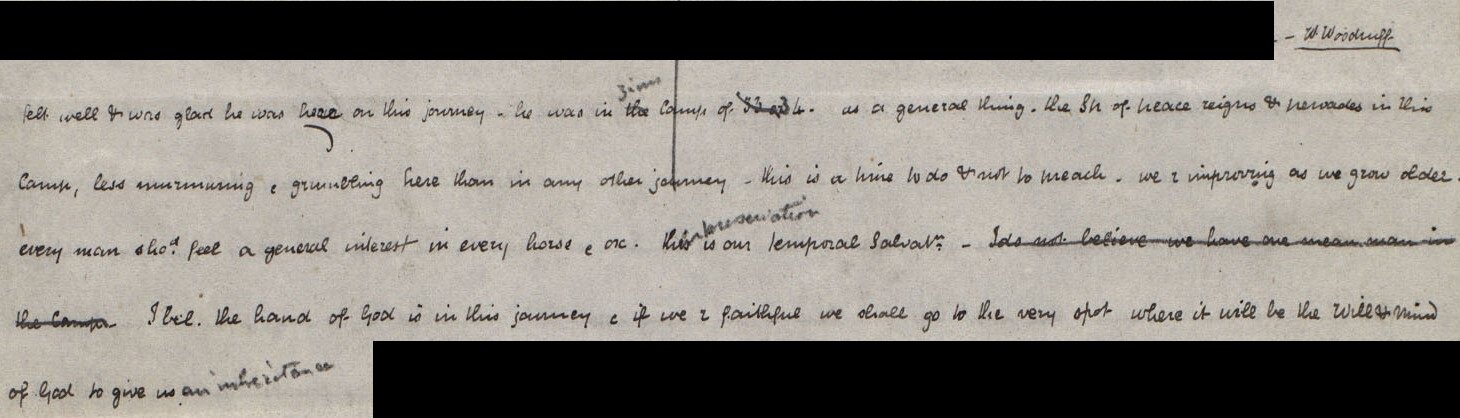 - W Woodruff
felt well & was glad he was here on this journey - he was in the Zions Camp of 34. as a general thing. the Sp of peace reigns & pervades in this
Camp, less murmuring & grumbling here than in any other journey - this is a time to do & not to preach. we r improving as we grow older.
every man sho.d feel a general interest in every horse & ox. this is our temporal Salvat.n - I do not believe we have one mean man in
the Camp. I bel. the hand of God is in this journey & if we r faithful we shall go to the very spot where it will be the Will & mind
of God to give us an inheritance